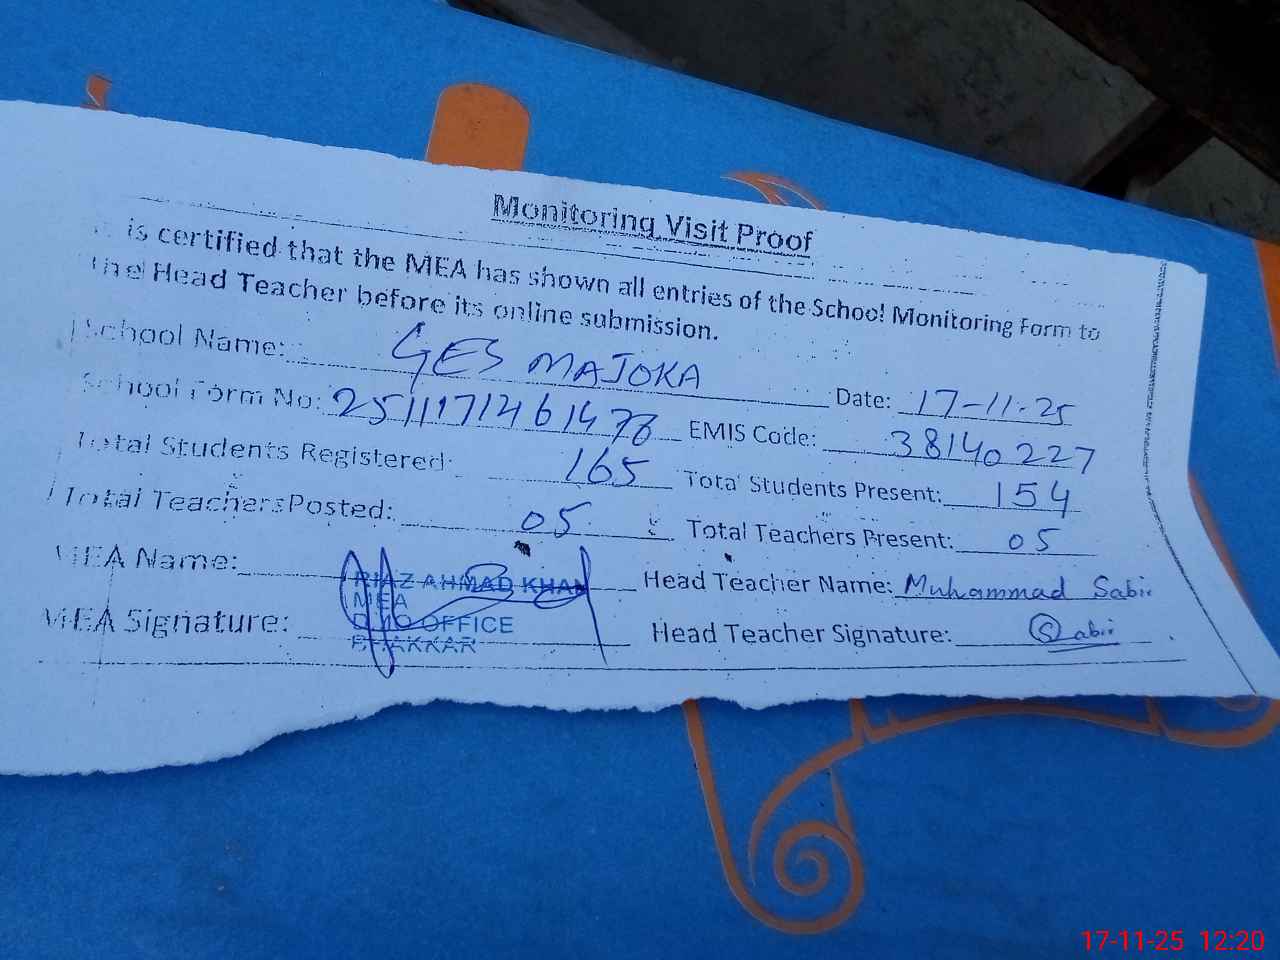 Monitoring Visit Proof
is certified that the MEA has shown all entries of the School Monitoring Form to
the Head Teacher before its online submission.
School Name: GES MAJOKA Date: 17-11-25
School Form No: EMIS Code: 38140227
Total Students Registered: 165 Total Students Present: 154
Total Teachers Posted: 05 Total Teachers Present: 05
MEA Name: RIAZ AHMAD KHAN Head Teacher Name: Muhammad Sabir
MEA
MEA Signature: DMO OFFICE Head Teacher Signature: Sabir
BHAKKAR
17-11-25 12:20